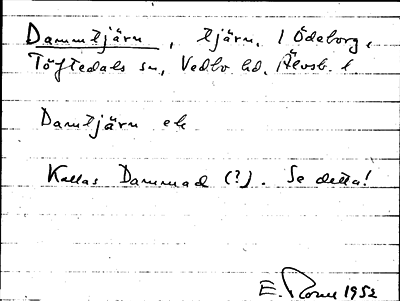 Dammtjärn, tjärn, i Ödeborg,
Töftedals sn, Vedbo hd, Älvsb. l
Damtjärn ek
Kallas Dammad (?). Se detta!
E. 1952